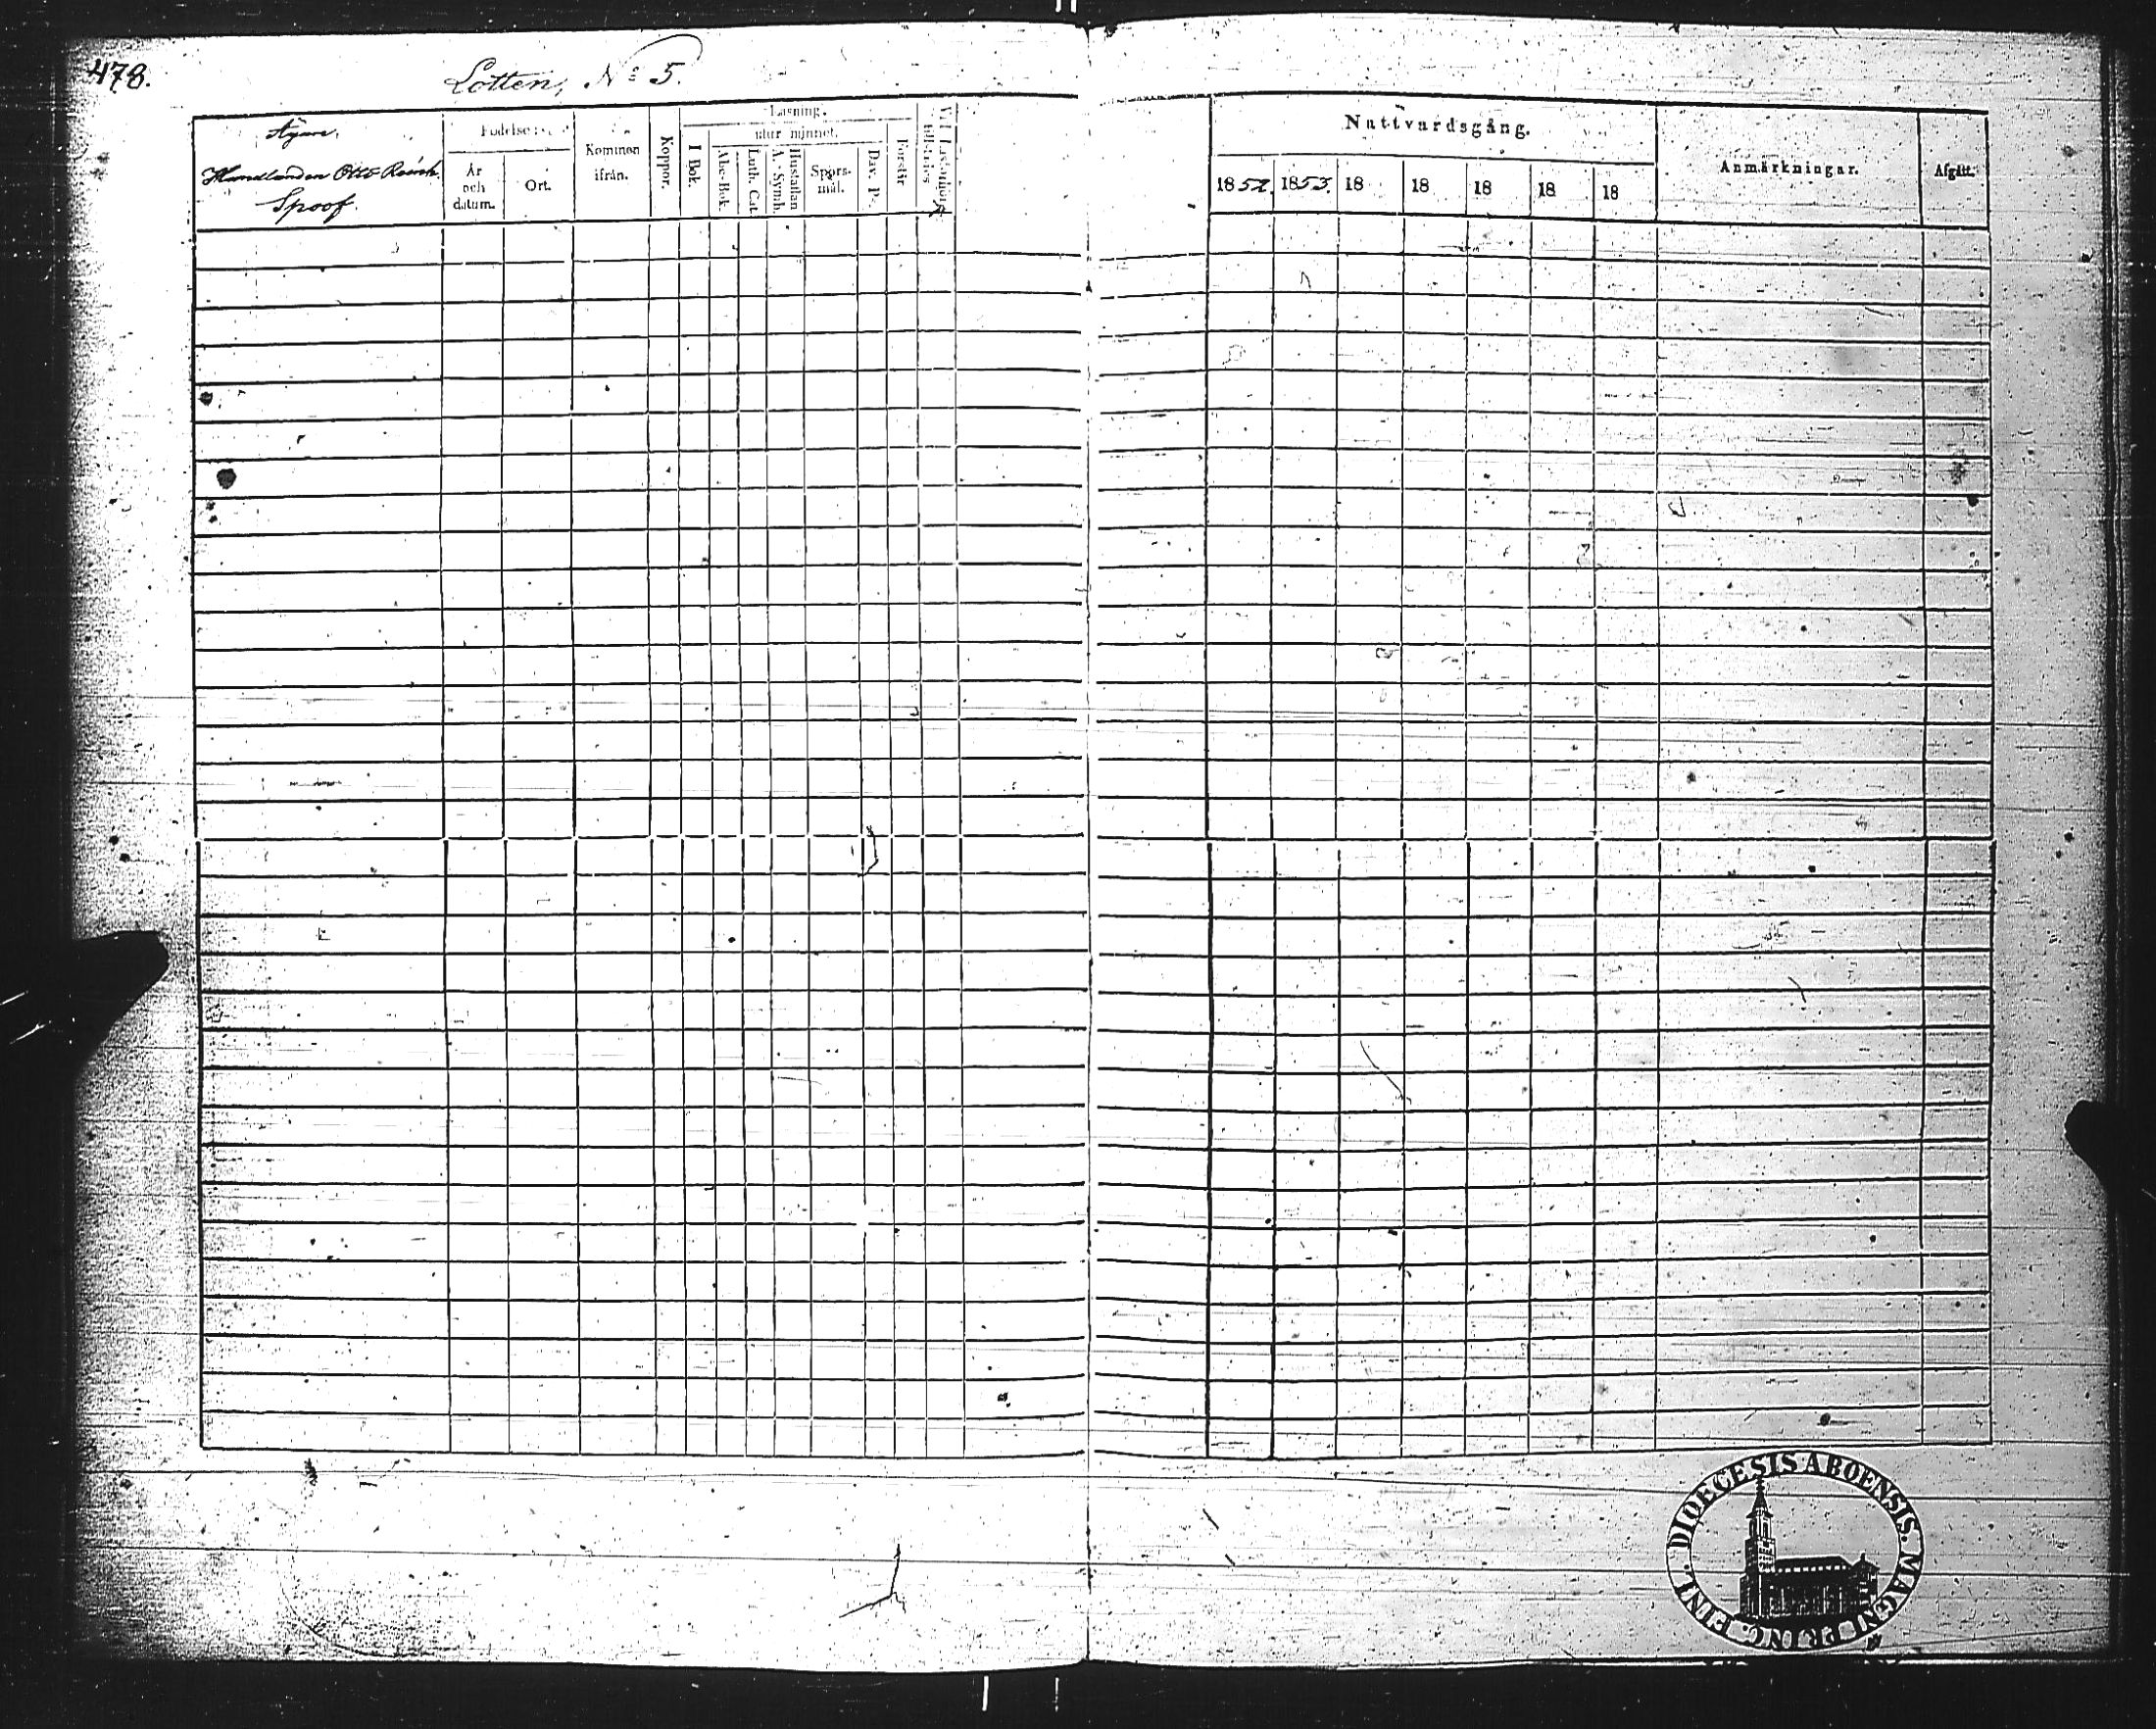 478.
Lotten, Nº 5.
Ägare.
Handlanden Otto Reinh.
Spoof.
Födelse
År
och
datum.
Ort.
Kommen
ifrån.
Koppor.
Läsning.
utur minnet.
I Bok.
Abc-Bok.
Luth. Cat.
Hustaflan
A. Symb.
Spörs-
mål.
Dav. Ps.
Förstår
Nattvardsgång.
1852. 1853. 18 18 18 18 18
Anmärkningar.
Afgått.
DIOECESIS ABOENSIS. MAGNI PRINC. FINL.